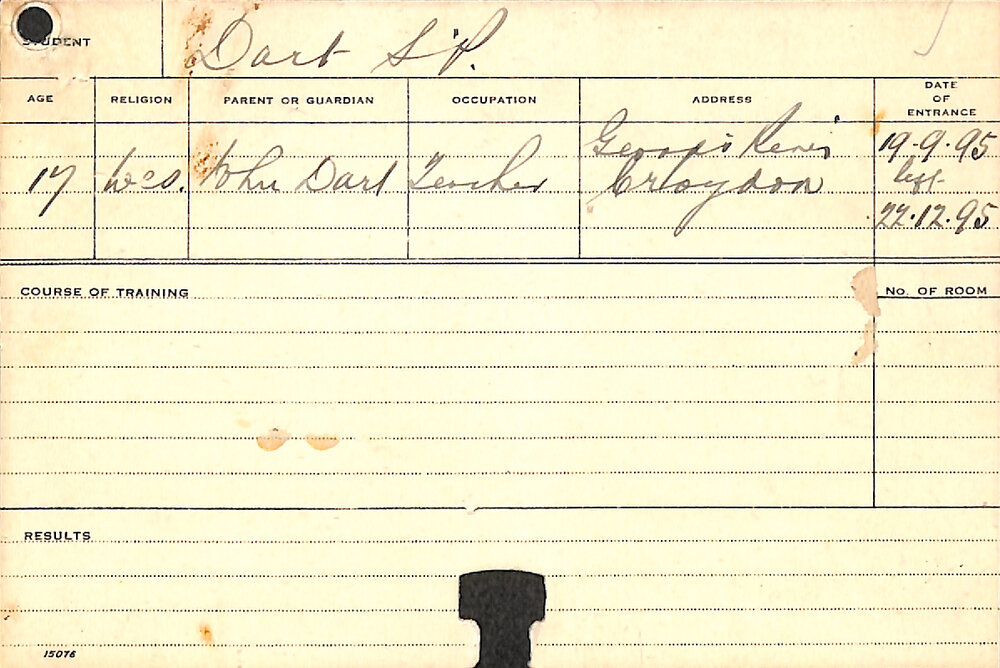 STUDENT Dart S.P.
AGE RELIGION PARENT OR GUARDIAN OCCUPATION ADDRESS DATE OF ENTRANCE
George's River 19-9-95
17 Wes. John Dart Teacher Croydon left
22.12.95
COURSE OF TRAINING No. OF ROOM
RESULTS
15076